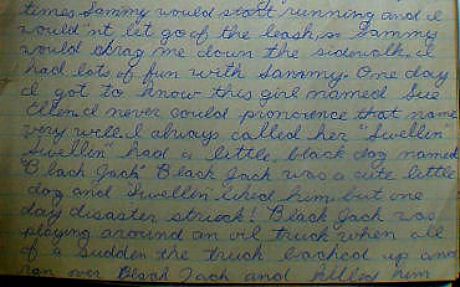 times Sammy would start running and I
wouldn't let go of the leash, so Sammy
would drag me down the sidewalk. I
had lots of fun with Sammy. One day
I got to know this girl named Sue
Ellen. I never could pronounce that name
very well. I always called her "Swellin"
"Swellin" had a little, black dog named
"Black Jack" Black Jack was a cute little
dog and Swellin liked him but one
day disaster struck! Black Jack was
playing around an oil truck when all
of a sudden the truck backed up and
ran over Black Jack and killed him